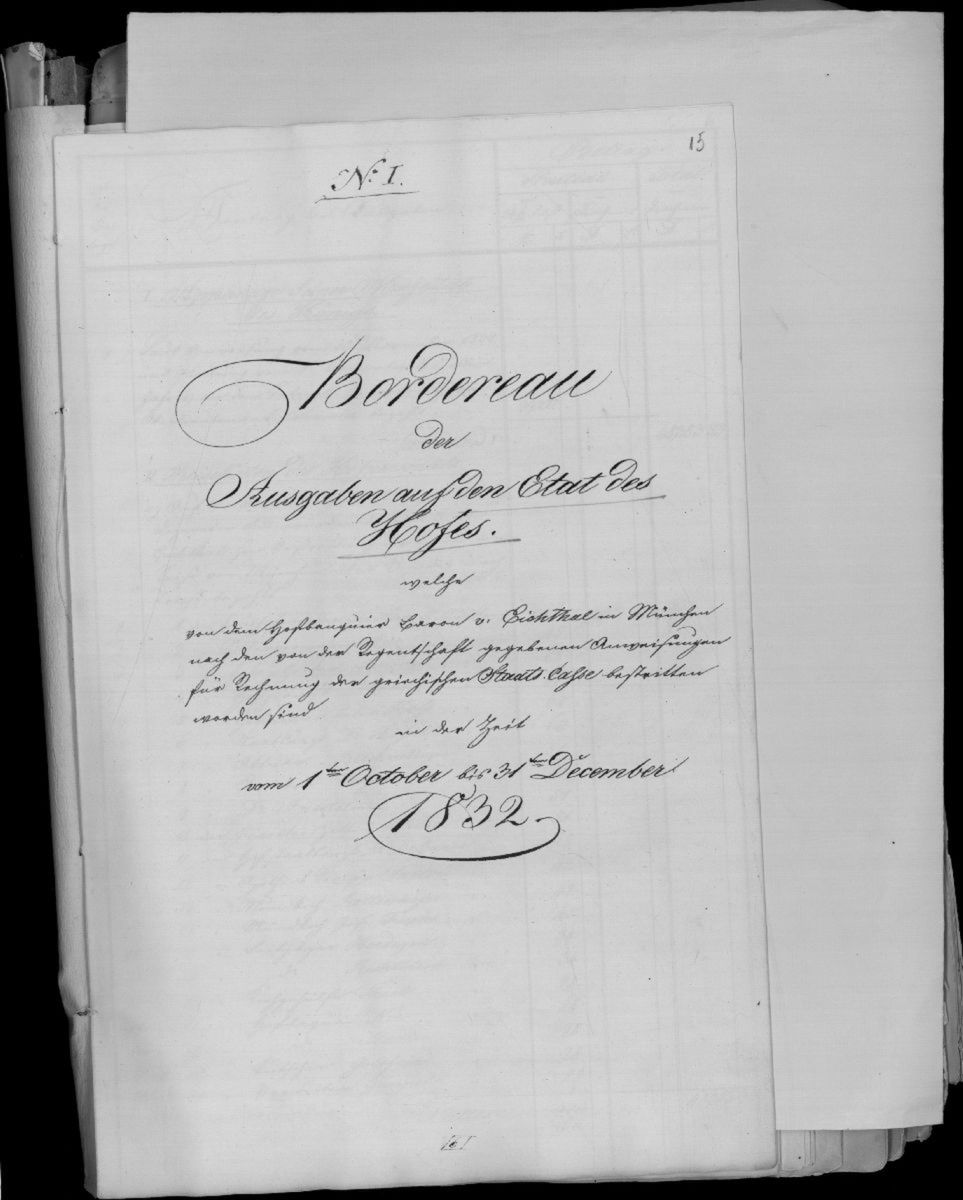 15
No. I.
Bordereau
der
Ausgaben auf den Etat des
Hofes.
welche
von dem Hofbanquier Baron v. Eichthal in München
nach den von der Regentschaft gegebenen Anweisungen
für Rechnung der griechischen Staats-Casse bestritten
worden sind
in der Zeit
vom 1ten October bis 31ten December
1832.